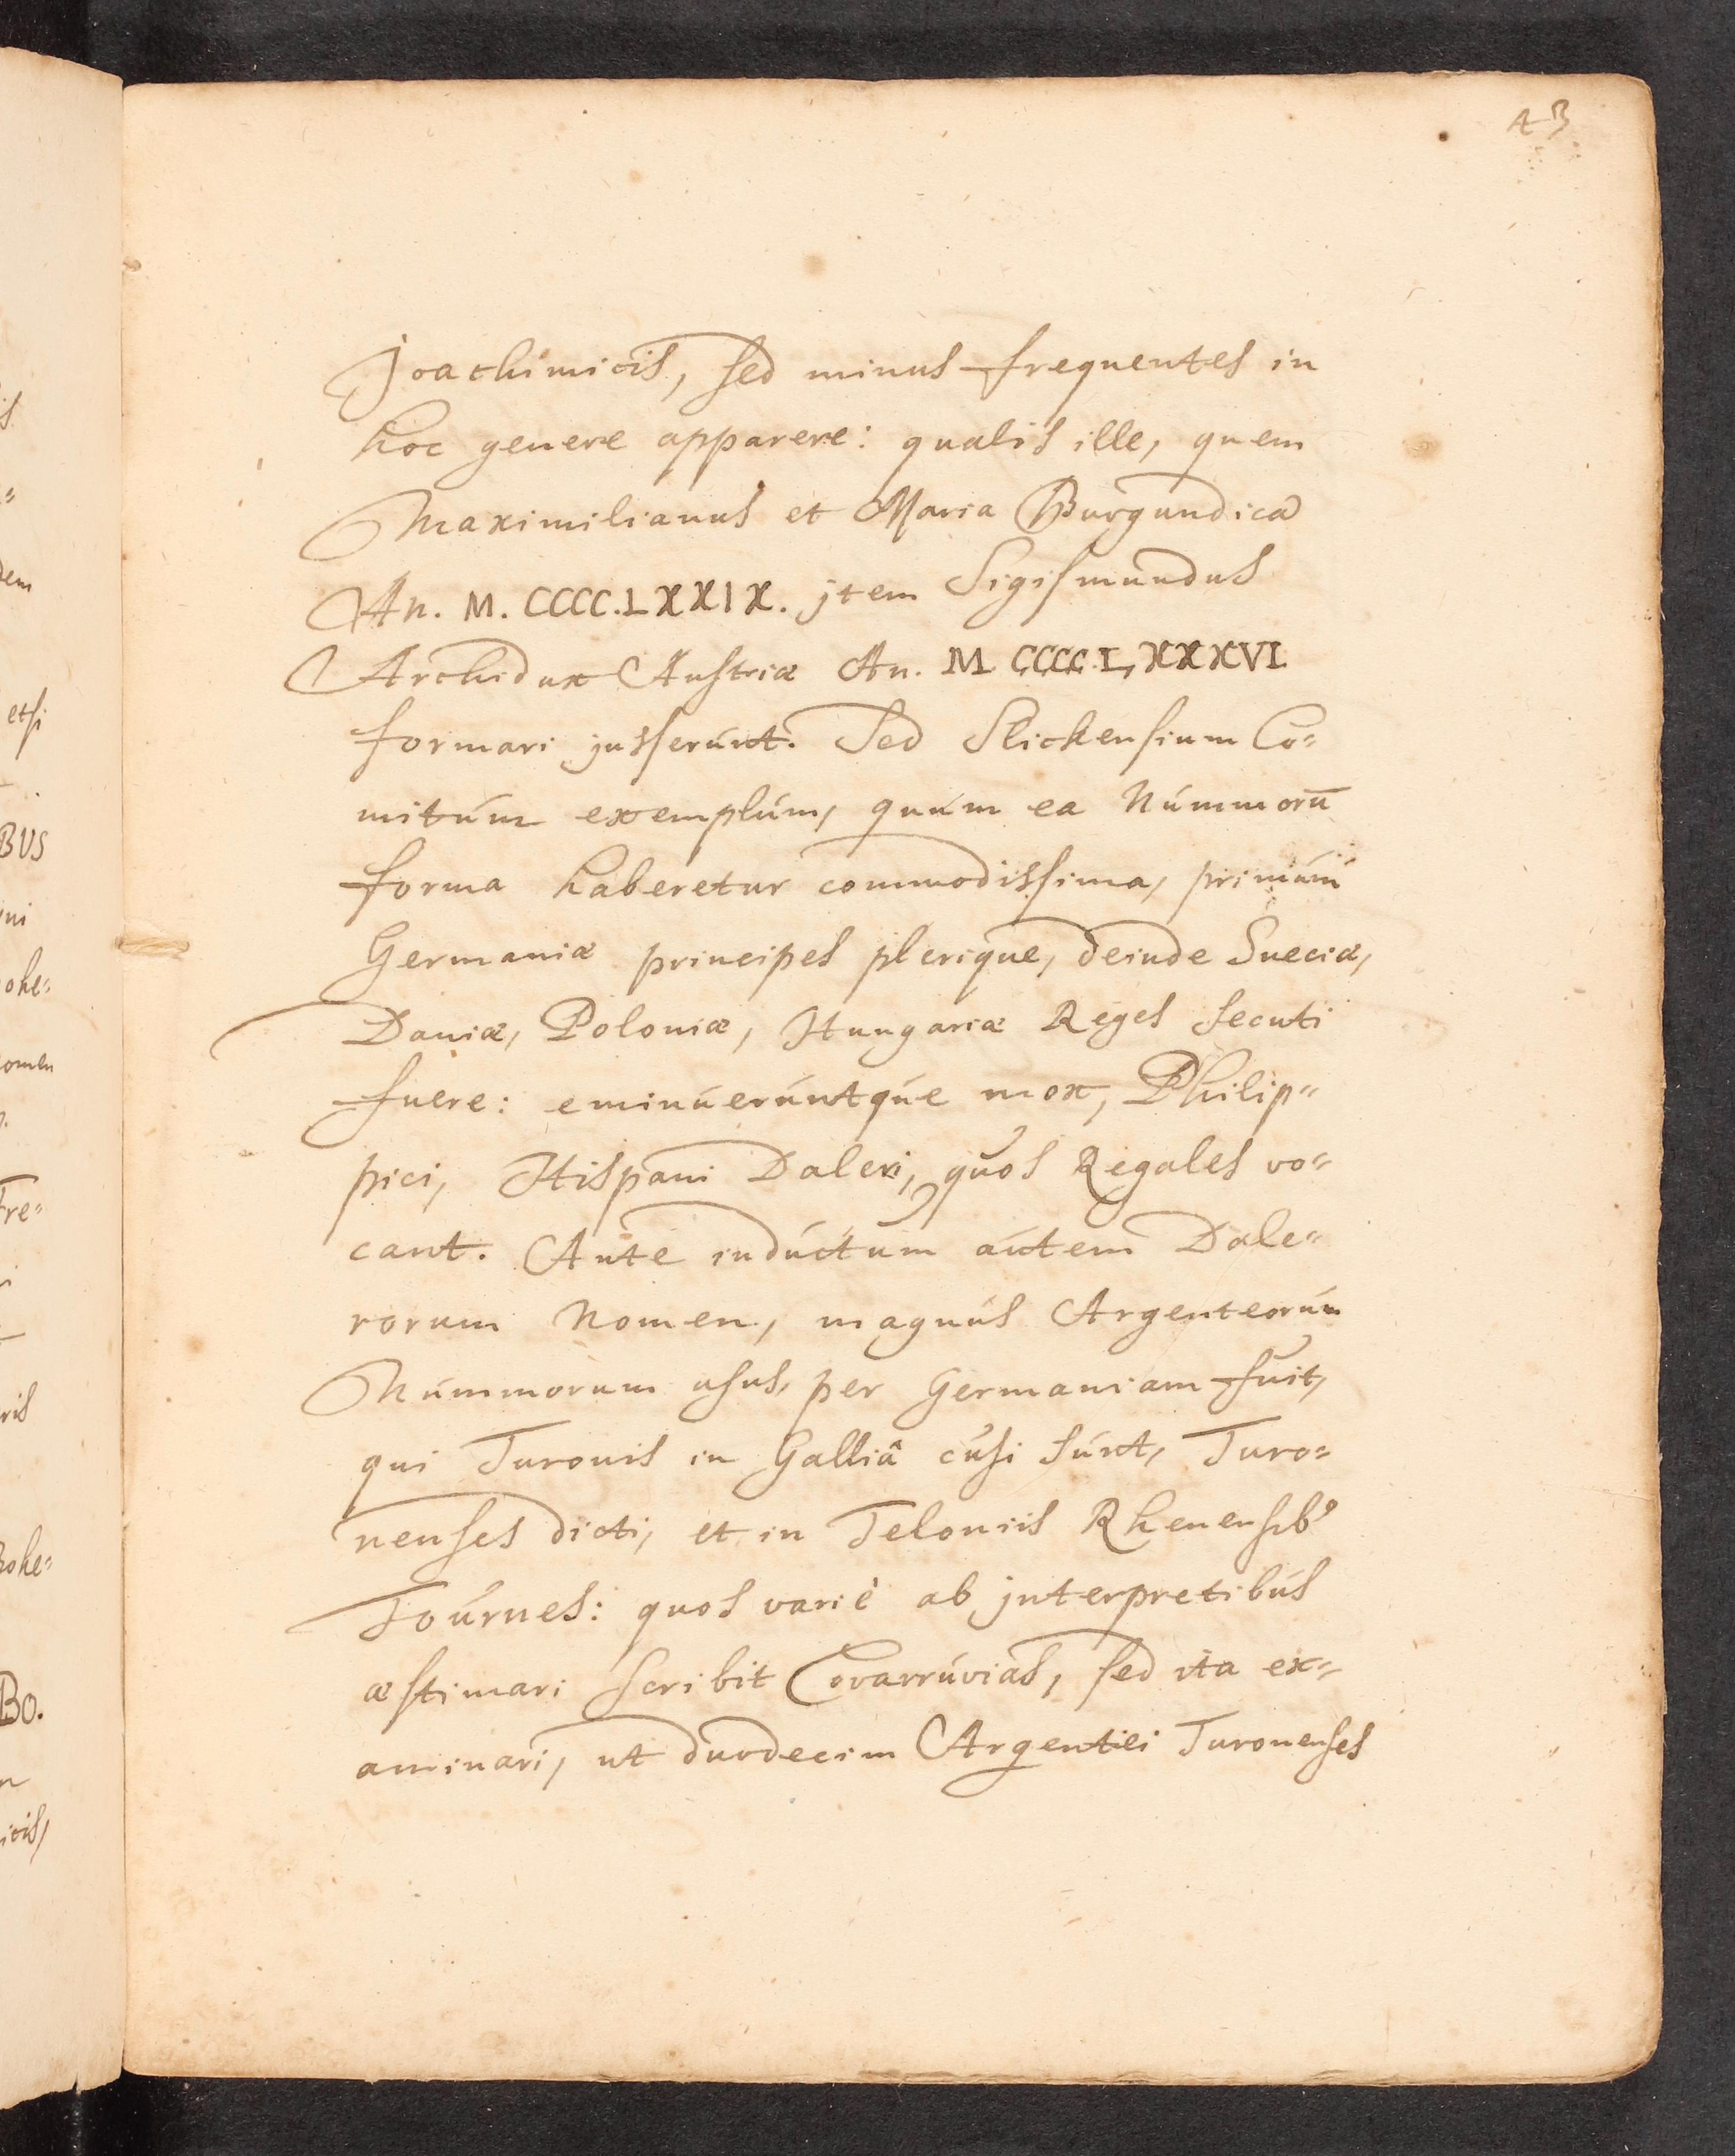 43
Joachimicis, sed minus frequentes in
hoc genere apparere: qualis ille, quem
Maximilianus et Maria Burgundica
An. M. CCCC.LXXIX. jtem Sigismundus
Archidux Austriæ An. M CCCC.LXXXVI.
formari jusserunt. Sed Slickensium Co=
mitum exemplum, quum ea Nummorū
forma haberetur commodissima, primùm
Germaniæ principes plerique, deinde Sueciæ,
Daniæ, Poloniæ, Hungariæ Reges secuti
fuere: eminueruntque mox, Philip=
pici, Hispani Daleri, quos Regales vo=
cant. Ante inductum autem Dale=
rorum Nomen, magnus Argenteorum
Nummorum usus, per Germaniam fuit,
qui Turonis in Galliâ cusi sunt, Turo=
nenses dicti, et in Teloniis Rhenensib9
Tournes: quos variè ab jnterpretibus
æstimari scribit Covarruvias, sed ita ex=
aminari, ut duodecim Argentei Turonenses
is
dem
etsi
BVS
ohe=
omen
Fre=
ris
Bohe=
BO.
icis,